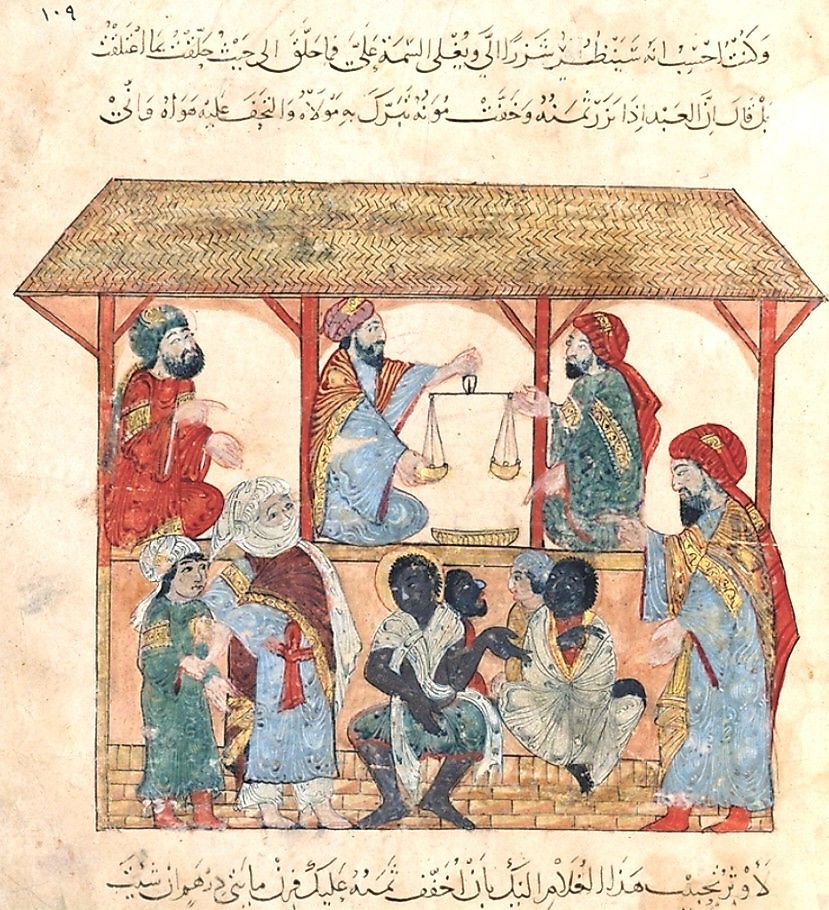 ١٠٩
وكنت احسب انه سينظر شزرا الي ويغلي السيمة علي فما حلق الى حيث حلقت بما اعتلقت
بل قال ان العبد اذا نزر ثمنه وخفت مونه تبرك به مولاه والتحف عليه هواه واني
لاوثر تحبيب هذا الغلام اليك بان اخفف ثمنه عليك فزن مائتي درهم ان شئت